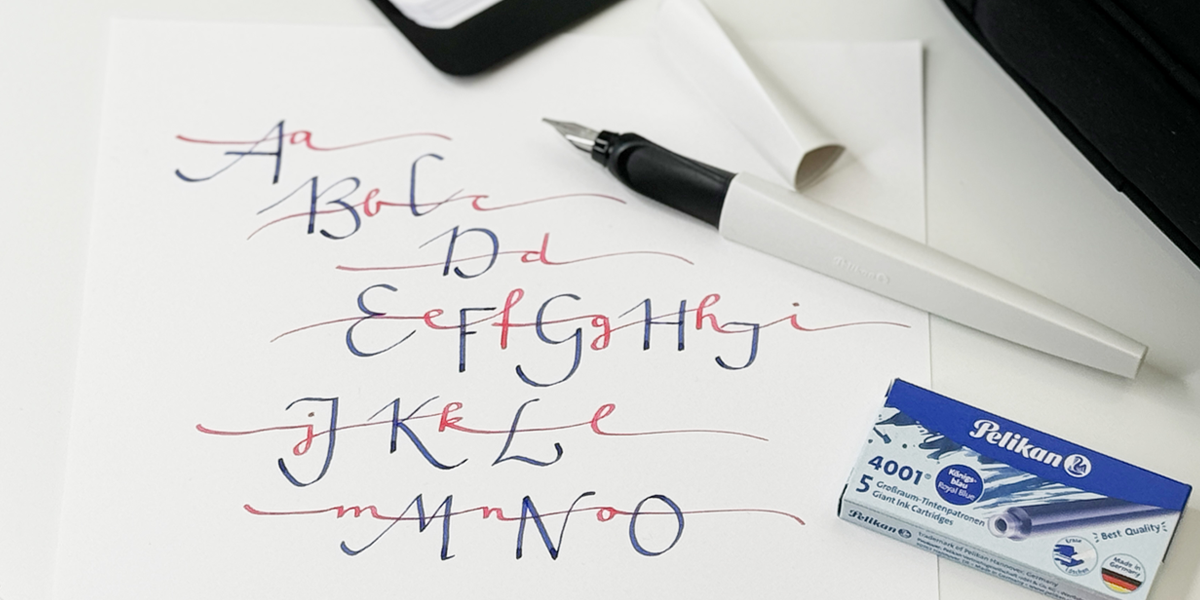 Aa
Bb Cc
Dd
Ee Ff Gg Hh I i
jJ Kk Ll
mM nN oO
Pelikan
Pelikan
4001®
Königs-
blau
Royal Blue
5 Großraum-Tintenpatronen
Giant Ink Cartridges
Best Quality
Made in
Germany
Pelikan